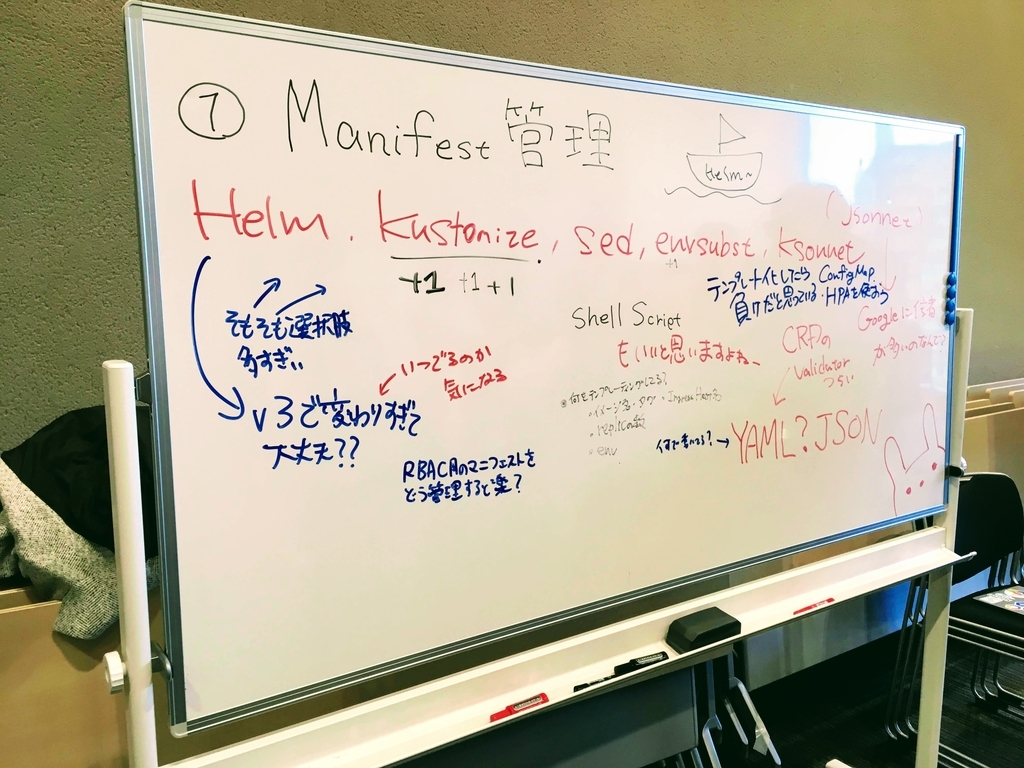 ⑦ Manifest 管理
Helm~
Helm, kustomize, sed, envsubst, ksonnet
(Jsonnet)
+1 +1 +1
+1
そもそも選択肢
多すぎぃ
v3で変わりすぎて
大丈夫??
いつでるのか
気になる
RBAC用のマニフェストを
どう管理すると楽?
Shell Script
もいいと思いますよね~
何をテンプレーティングしてる?
・イメージ名・タグ ・Ingress Host名
・replica数
・env
テンプレート化したら ConfigMap
負けだと思っている・HPAを使おう
CRDの
validator
つらい
Googleに信者
が多いのなんで?
何で書いてる?→
YAML? JSON